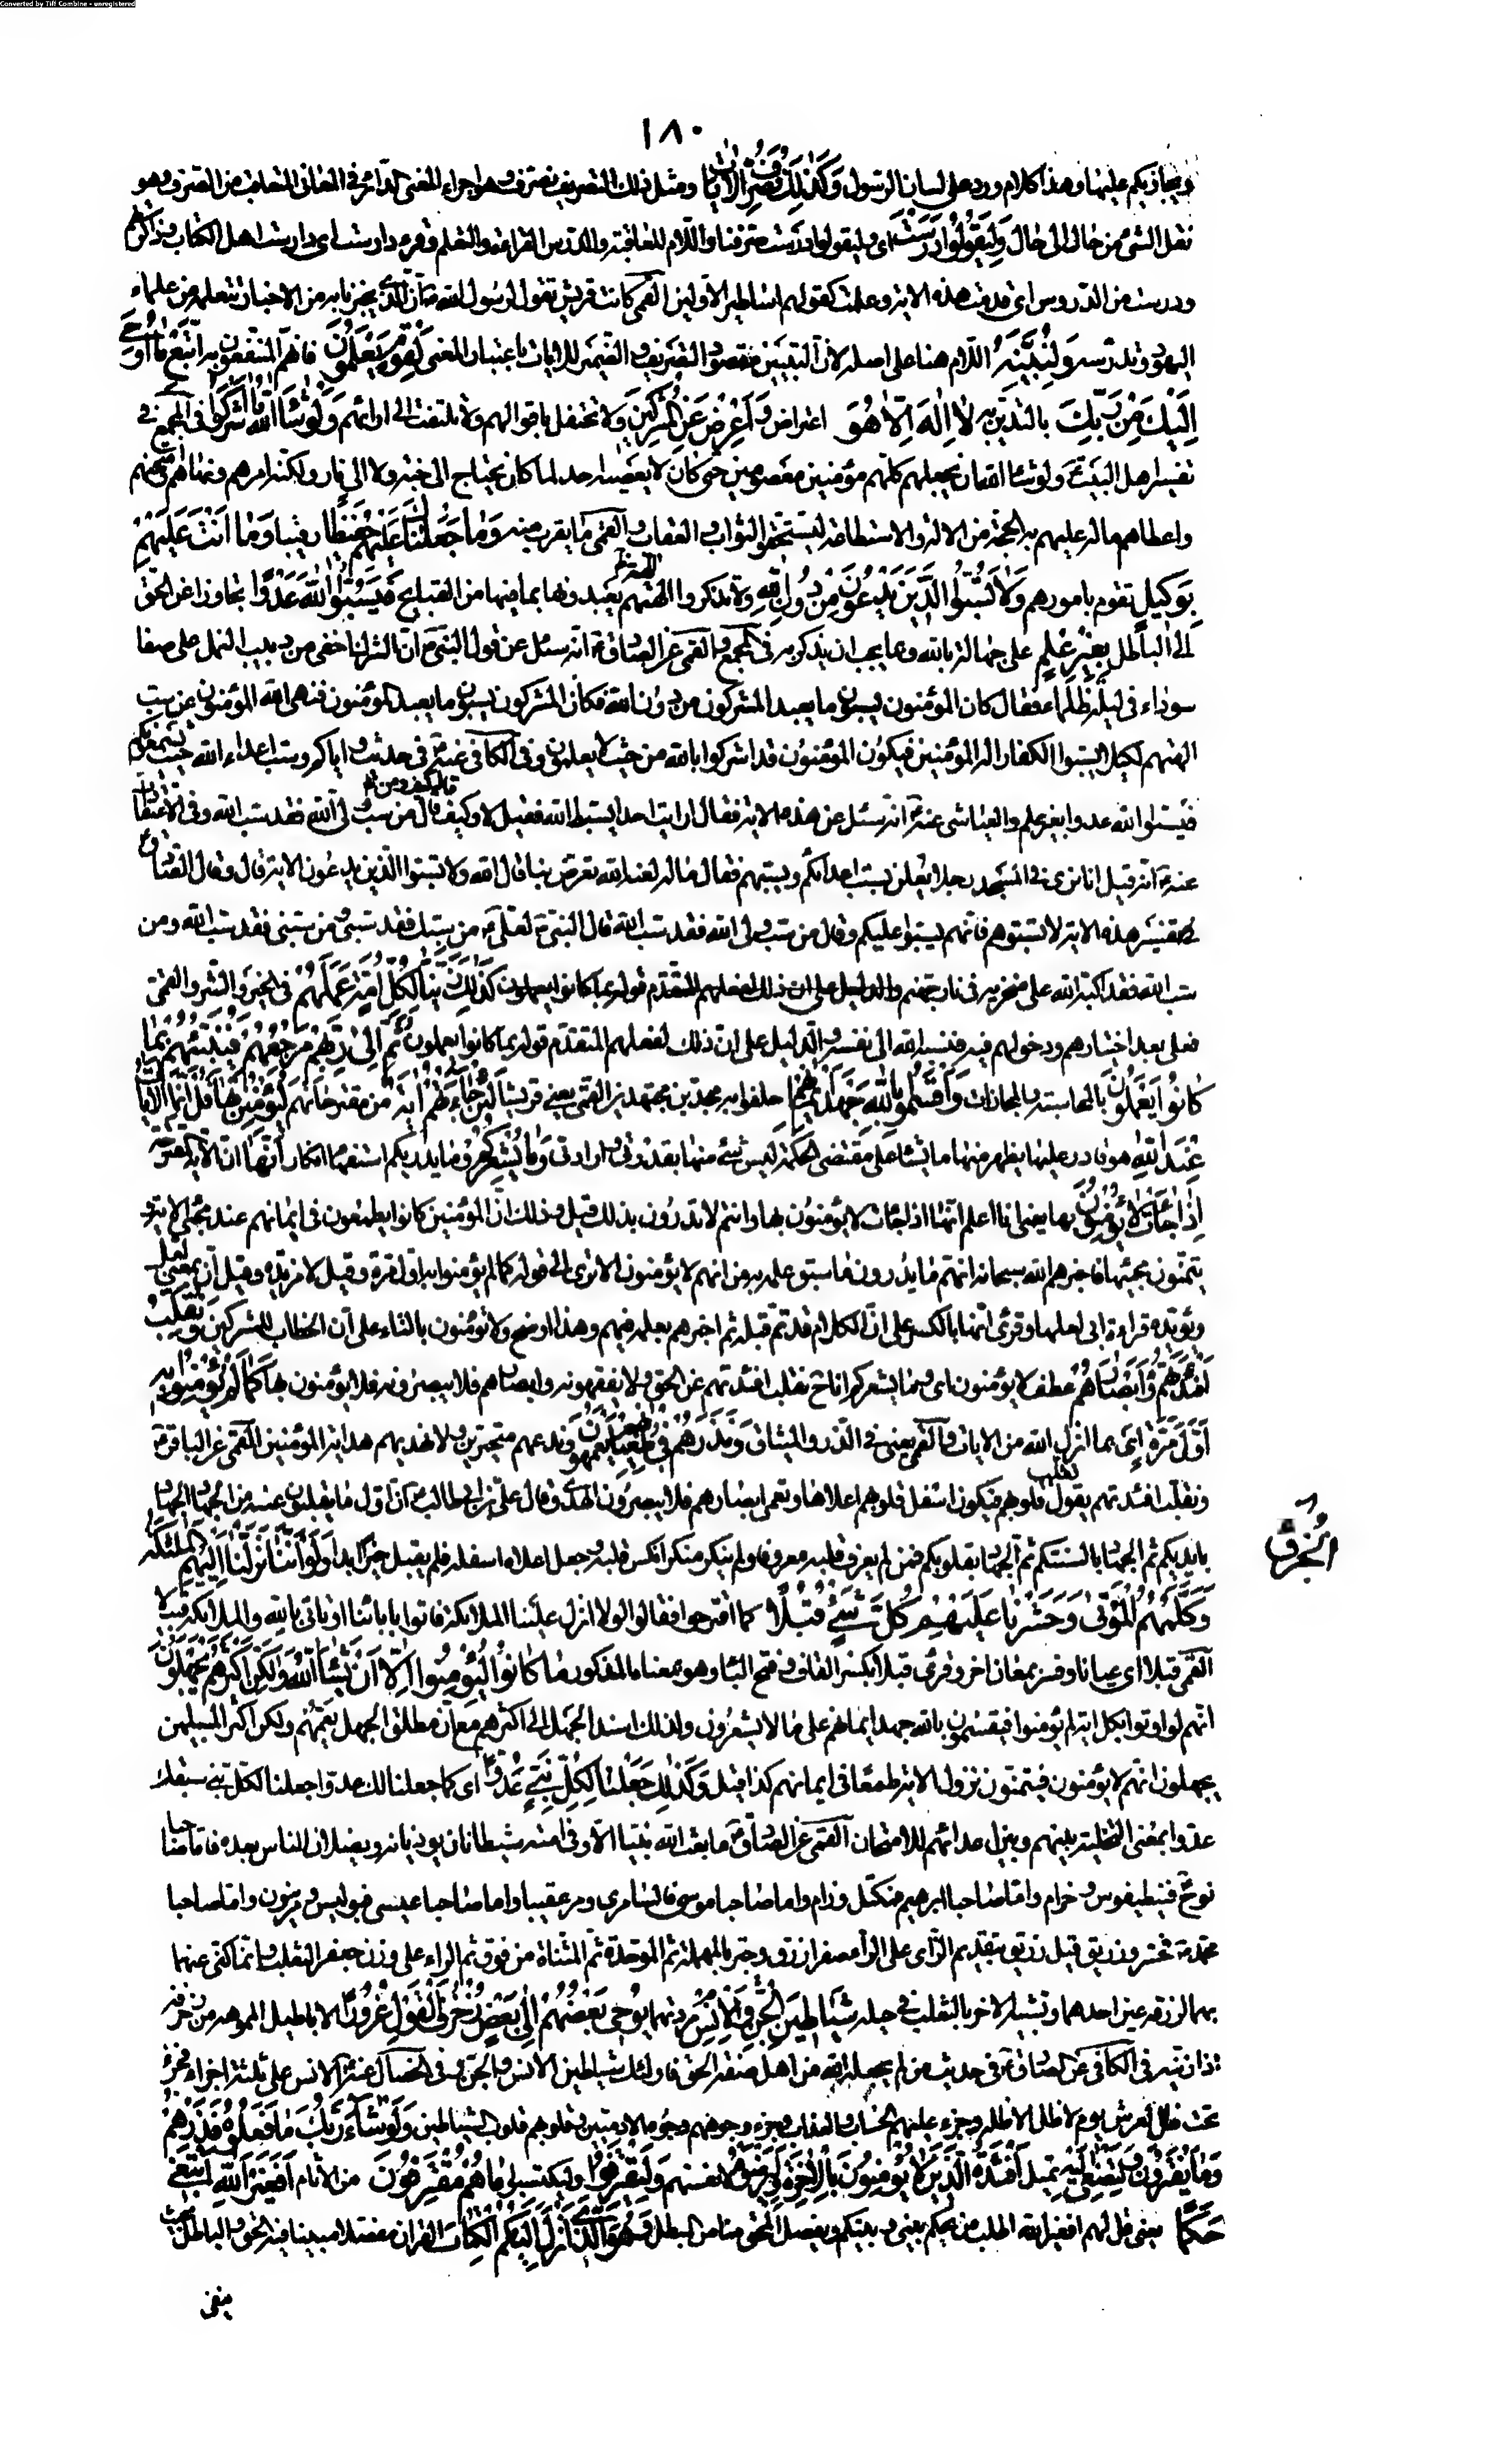 Converted by Tiff Combine - unregistered
١٨٠
ويجازيكم عليها وهذا كلام ورد على لسان الرسول وَكَذٰلِكَ نُصَرِّفُ الْاٰيَاتِ ومثل ذلك التصريف نصرف وهو اجراء المعنى الدائر في المعاني المتعاقبة من الصرف وهو
نقل الشئ من حال الى حال وَلِيَقُولُوا دَرَسْتَ اى وليقولوا درست صرفنا واللام للعاقبة والدرس القراءة والتعلم وقرء دارست اى دارست اهل الكتاب وذاكرتهم
ودرست من الدروس اى قدمت هذه الاية وعفت كقولهم اساطير الاولين القمى كانت قريش تقول لرسول الله ص ان الذى يخبرنا به من الاخبار تتعلمه من علماء
اليهود وتدرسه وَلِنُبَيِّنَهُ اللام هنا على اصله لان التبيين مقصود التصريف والضمير للايات باعتبار المعنى لِقَوْمٍ يَعْلَمُونَ فانهم المنتفعون به اِتَّبِعْ مَا اُوحِىَ
اِلَيْكَ مِنْ رَبِّكَ بالتدين به لَا اِلٰهَ اِلَّا هُوَ اعتراض وَاَعْرِضْ عَنِ الْمُشْرِكِينَ ولا تحتفل باقوالهم ولا تلتفت الى ارائهم وَلَوْ شَاءَ اللّٰهُ مَا اَشْرَكُوا فى المجمع في
تفسير اهل البيت ع ولو شاء الله ان يجعلهم كلهم مؤمنين معصومين حتى كان لا يعصيه احد لما كان يحتاج الى جنة ولا الى نار ولكنه امرهم ونهاهم وامتحنهم
واعطاهم ماله عليهم به الحجة من الالة والاستطاعة ليستحقوا الثواب والعقاب والقمى ما يقرب منه وَمَا جَعَلْنَاكَ عَلَيْهِمْ حَفِيظًا رقيبا وَمَا اَنْتَ عَلَيْهِمْ
بِوَكِيلٍ تقوم بامورهم وَلَا تَسُبُّوا الَّذِينَ يَدْعُونَ مِنْ دُونِ اللّٰهِ ولا تذكروا الهتهم يعبدونها بما فيها من القبايح فَيَسُبُّوا اللّٰهَ عَدْوًا تجاوزا عن الحق
الى الباطل بِغَيْرِ عِلْمٍ على جهالة بالله وما يجب ان يذكر به فى المجمع والقمى عن الصادق ع انه سئل عن قول النبى ص ان الشرك اخفى من دبيب النمل على صفا
سوداء فى ليلة ظلماء فقال كان المؤمنون يسبون ما يعبد المشركون من دون الله فكان المشركون يسبون ما يعبد المؤمنون فنهى الله المؤمنين عن سب
الهتهم لكيلا يسبوا الكفار اله المؤمنين فيكون المؤمنون قد اشركوا بالله من حيث لا يعلمون وفى الكافى عنه ع فى حديث واياكم وسب اعداء الله حيث يسمعونكم
فيسبوا الله عدوا بغير علم والعياشى عنه ع انه سئل عن هذه الاية فقال ارايت احدا يسب الله فقيل لا وكيف قال من سب ولى الله فقد سب الله وفى الاعتقادات
عنه ع انه قيل انا نرى فى المسجد رجلا يعلن بسب اعدائكم ويسبهم فقال ماله لعنه الله تعرض بنا قال الله ولا تسبوا الذين يدعون الاية قال وقال الصادق ع
فى تفسير هذه الاية لا تسبوهم فانهم يسبوا عليكم وقال من سب ولى الله فقد سب الله قال النبى ص لعلى ع من سبك فقد سبنى ومن سبنى فقد سب الله ومن
سب الله فقد اكبه الله على منخريه فى نار جهنم والدليل على ان ذلك لفعلهم المتقدم قوله بما كانوا يعملون كَذٰلِكَ زَيَّنَّا لِكُلِّ اُمَّةٍ عَمَلَهُمْ فى الخير والشر والقمى
فعلى بعد اختيارهم ودخولهم فيه فنسبه الله الى نفسه والدليل على ان ذلك لفعلهم المتقدم قوله بما كانوا يعملون ثُمَّ اِلٰى رَبِّهِمْ مَرْجِعُهُمْ فَيُنَبِّئُهُمْ بِمَا
كَانُوا يَعْمَلُونَ بالمحاسبة والمجازات وَاَقْسَمُوا بِاللّٰهِ جَهْدَ اَيْمَانِهِمْ حلفوا به مجدين مجتهدين القمى يعنى قريشا لَئِنْ جَاءَتْهُمْ اٰيَةٌ من مقترحاتهم لَيُؤْمِنُنَّ بِهَا قُلْ اِنَّمَا الْاٰيَاتُ
عِنْدَ اللّٰهِ هو قادر عليها يظهر منها ما يشاء على مقتضى الحكمة ليس شئ منها بقدرتى وارادتى وَمَا يُشْعِرُكُمْ وما يدريكم استفهام انكار اَنَّهَا ان الاية المقترحة
اِذَا جَاءَتْ لَا يُؤْمِنُونَ بها يعنى انا اعلم انها اذا جاءت لا يؤمنون بها وانتم لا تدرون بذلك قيل وذلك ان المؤمنين كانوا يطمعون فى ايمانهم عند مجئ الاية و
يتمنون مجيئها فاخبرهم الله سبحانه انهم ما يدرون ما سبق علمه به من انهم لا يؤمنون الا ترى الى قوله كما لم يؤمنوا به اول مرة وقيل لا مزيدة وقيل ان بمعنى لعل
ويؤيده قراءة ابى لعلها وقرئ انها بالكسر على ان الكلام قد تم قبله ثم اخبرهم بعلمه فيهم وهذا اوضح ولا تؤمنون بالتاء على ان الخطاب للمشركين وَنُقَلِّبُ
اَفْئِدَتَهُمْ وَاَبْصَارَهُمْ عطف على لا يؤمنون اى وما يشعركم انا ح نقلب افئدتهم عن الحق ولا يفقهونه وابصارهم فلا يبصرونه فلا يؤمنون بها كَمَا لَمْ يُؤْمِنُوا بِهِ
اَوَّلَ مَرَّةٍ اى بما انزل الله من الايات والقمى يعنى فى الذر والميثاق وَنَذَرُهُمْ فِى طُغْيَانِهِمْ يَعْمَهُونَ وندعهم متحيرين ولا نهديهم هداية المؤمنين القمى عن الباقر ع
ونقلب افئدتهم يقول قلوبهم فيكون اسفل قلوبهم اعلاها ونعمى ابصارهم فلا يبصرون الهدى وقال على بن ابى طالب ع ان اول ما يقلبون عنه من الجهاد الجهاد
بايديكم ثم الجهاد بالسنتكم ثم الجهاد بقلوبكم فمن لم يعرف قلبه معروفا ولم ينكر منكرا نكس قلبه وجعل اعلاه اسفله فلم يقبل خيرا ابدا وَلَوْ اَنَّنَا نَزَّلْنَا اِلَيْهِمُ الْمَلٰئِكَةَ
وَكَلَّمَهُمُ الْمَوْتٰى وَحَشَرْنَا عَلَيْهِمْ كُلَّ شَىْءٍ قُبُلًا كما اقترحوا فقالوا لولا انزل علينا الملائكة فاتوا بابائنا او تاتى بالله والملائكة قبيلا
القمى قبلا اى عيانا وفسر بمعان اخر وقرئ قبلا بكسر القاف وفتح الباء وهو بمعناه المذكور مَا كَانُوا لِيُؤْمِنُوا اِلَّا اَنْ يَشَاءَ اللّٰهُ وَلٰكِنَّ اَكْثَرَهُمْ يَجْهَلُونَ
انهم لو اوتوا بكل اية لم يؤمنوا فيقسمون بالله جهد ايمانهم على ما لا يشعرون ولذلك اسند الجهل الى اكثرهم مع ان مطلق الجهل يعمهم ولكن اكثر المسلمين
يجهلون انهم لا يؤمنون فيتمنون نزول الاية طمعا فى ايمانهم كذا قيل وَكَذٰلِكَ جَعَلْنَا لِكُلِّ نَبِىٍّ عَدُوًّا اى كما جعلنا لك عدوا جعلنا لكل نبى سبقك
عدوا بمعنى التخلية بينهم وبين اعدائهم للامتحان القمى عن الصادق ع ما بعث الله نبيا الا وفى امته شيطانان يوذيانه ويضلان الناس بعده فاما صاحبا
نوح فقنطيفوس وخرام واما صاحبا ابرهيم فمكثل ورزام واما صاحبا موسى فالسامرى ومرعقيبا واما صاحبا عيسى فبوليس ومريتون واما صاحبا
محمد ص فحبتر وزريق قيل زريق بتقديم الزاى على الراء مصغر ازرق وحبتر بالمهملة ثم الموحدة ثم المثناة من فوق ثم الراء على وزن جعفر الثعلب وانما كنى عنهما
بهما لزرقة عين احدهما وتشبيه الاخر بالثعلب فى حيله شَيَاطِينَ الْاِنْسِ وَالْجِنِّ مردتهما يُوحِى بَعْضُهُمْ اِلٰى بَعْضٍ زُخْرُفَ الْقَوْلِ غُرُورًا الاباطيل المموهة من زخرفه
اذا زينه فى الكافى عن الصادق ع فى حديث من لم يجعله الله من اهل صفة الحق فاولئك شياطين الانس والجن وفى الخصال عنه ع الانس على ثلثة اجزاء فجزء
تحت ظل العرش يوم لا ظل الا ظله وجزء عليهم الحساب والعذاب وجزء وجوههم وجوه الادميين وقلوبهم قلوب الشياطين وَلَوْ شَاءَ رَبُّكَ مَا فَعَلُوهُ فَذَرْهُمْ
وَمَا يَفْتَرُونَ وَلِتَصْغٰى اِلَيْهِ تميل اَفْئِدَةُ الَّذِينَ لَا يُؤْمِنُونَ بِالْاٰخِرَةِ وَلِيَرْضَوْهُ لانفسهم وَلِيَقْتَرِفُوا وليكتسبوا مَا هُمْ مُقْتَرِفُونَ من الاثام اَفَغَيْرَ اللّٰهِ اَبْتَغِى
حَكَمًا يعنى قل لهم افغير الله اطلب من يحكم بينى وبينكم ويفصل المحق منا من المبطل وَهُوَ الَّذِى اَنْزَلَ اِلَيْكُمُ الْكِتَابَ القران مُفَصَّلًا مبينا فيه الحق والباطل